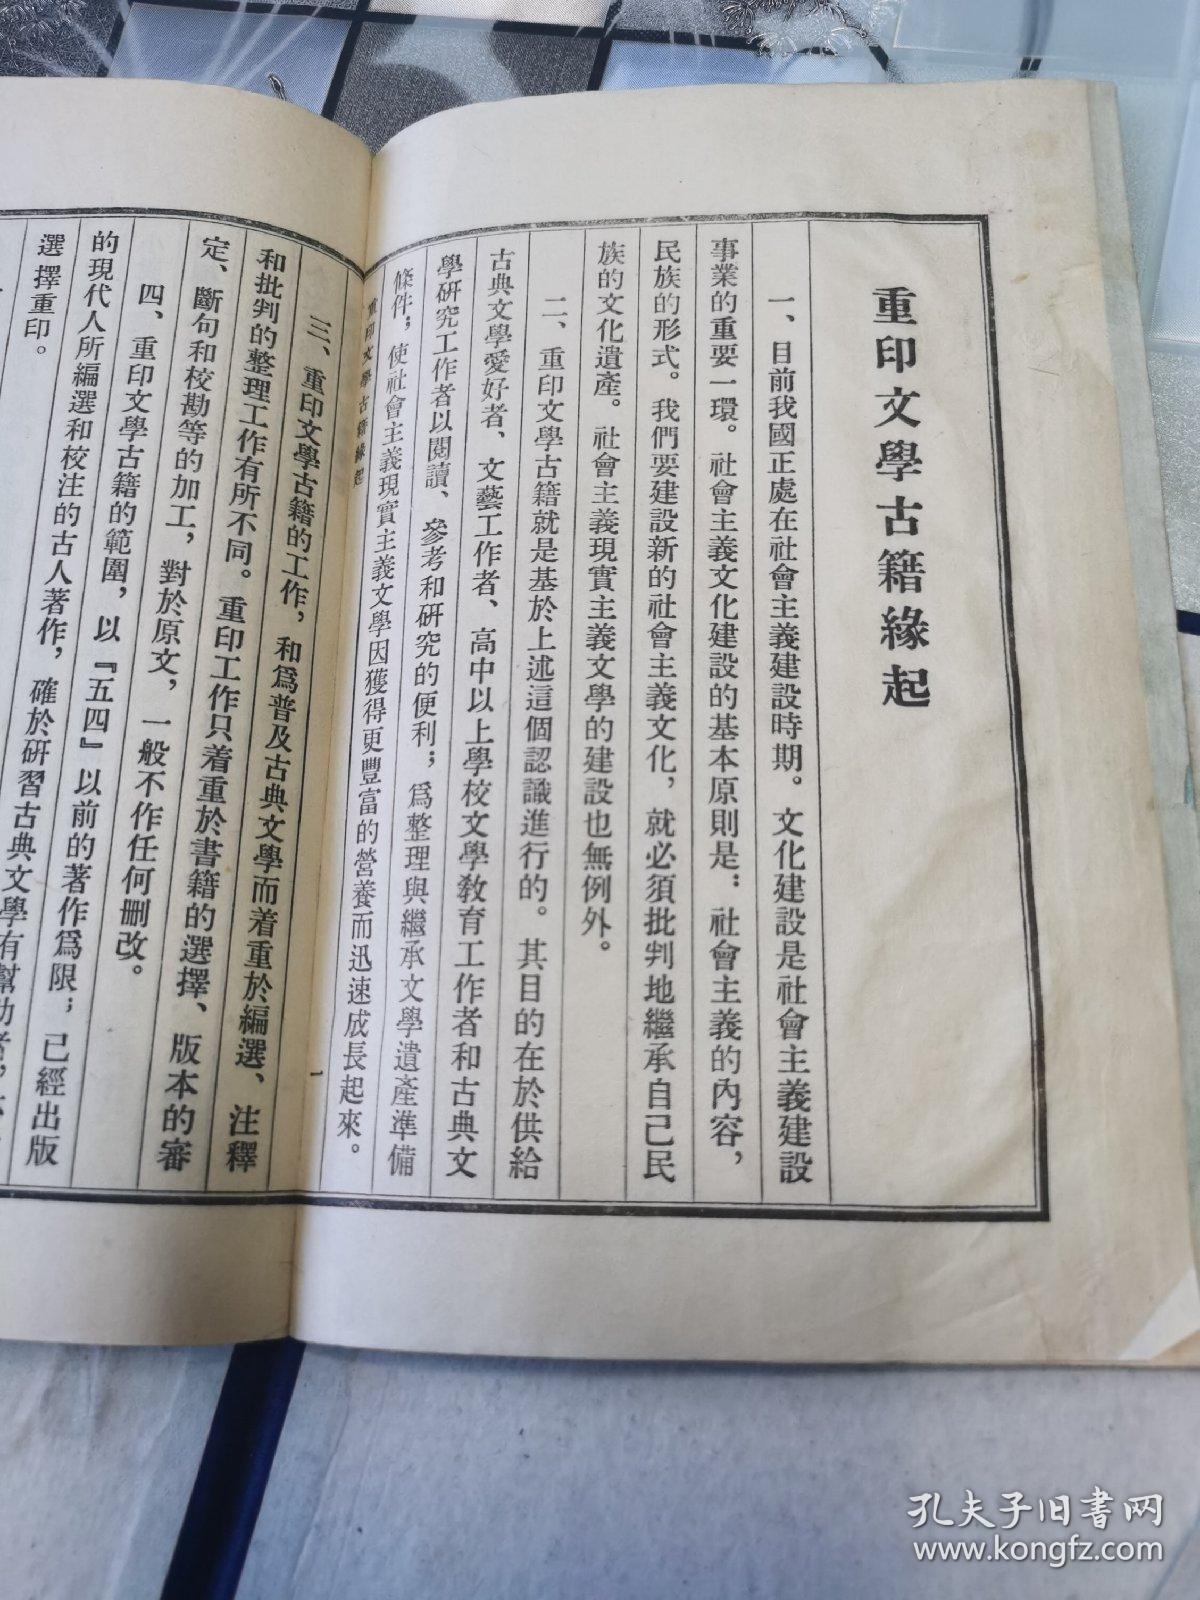 重印文學古籍緣起
一、目前我國正處在社會主義建設時期。文化建設是社會主義建設
事業的重要一環。社會主義文化建設的基本原則是：社會主義的內容，
民族的形式。我們要建設新的社會主義文化，就必須批判地繼承自己民
族的文化遺產。社會主義現實主義文學的建設也無例外。
二、重印文學古籍就是基於上述這個認識進行的。其目的在於供給
古典文學愛好者、文藝工作者、高中以上學校文學敎育工作者和古典文
學研究工作者以閱讀、參考和研究的便利；爲整理與繼承文學遺產準備
條件，使社會主義現實主義文學因獲得更豐富的營養而迅速成長起來。
重印文學古籍緣起
一
三、重印文學古籍的工作，和爲普及古典文學而着重於編選、注釋
和批判的整理工作有所不同。重印工作只着重於書籍的選擇、版本的審
定、斷句和校勘等的加工，對於原文，一般不作任何删改。
四、重印文學古籍的範圍，以『五四』以前的著作爲限；已經出版
的現代人所編選和校注的古人著作，確於研習古典文學有幫助者，
選擇重印。
孔夫子旧书网
www.kongfz.com